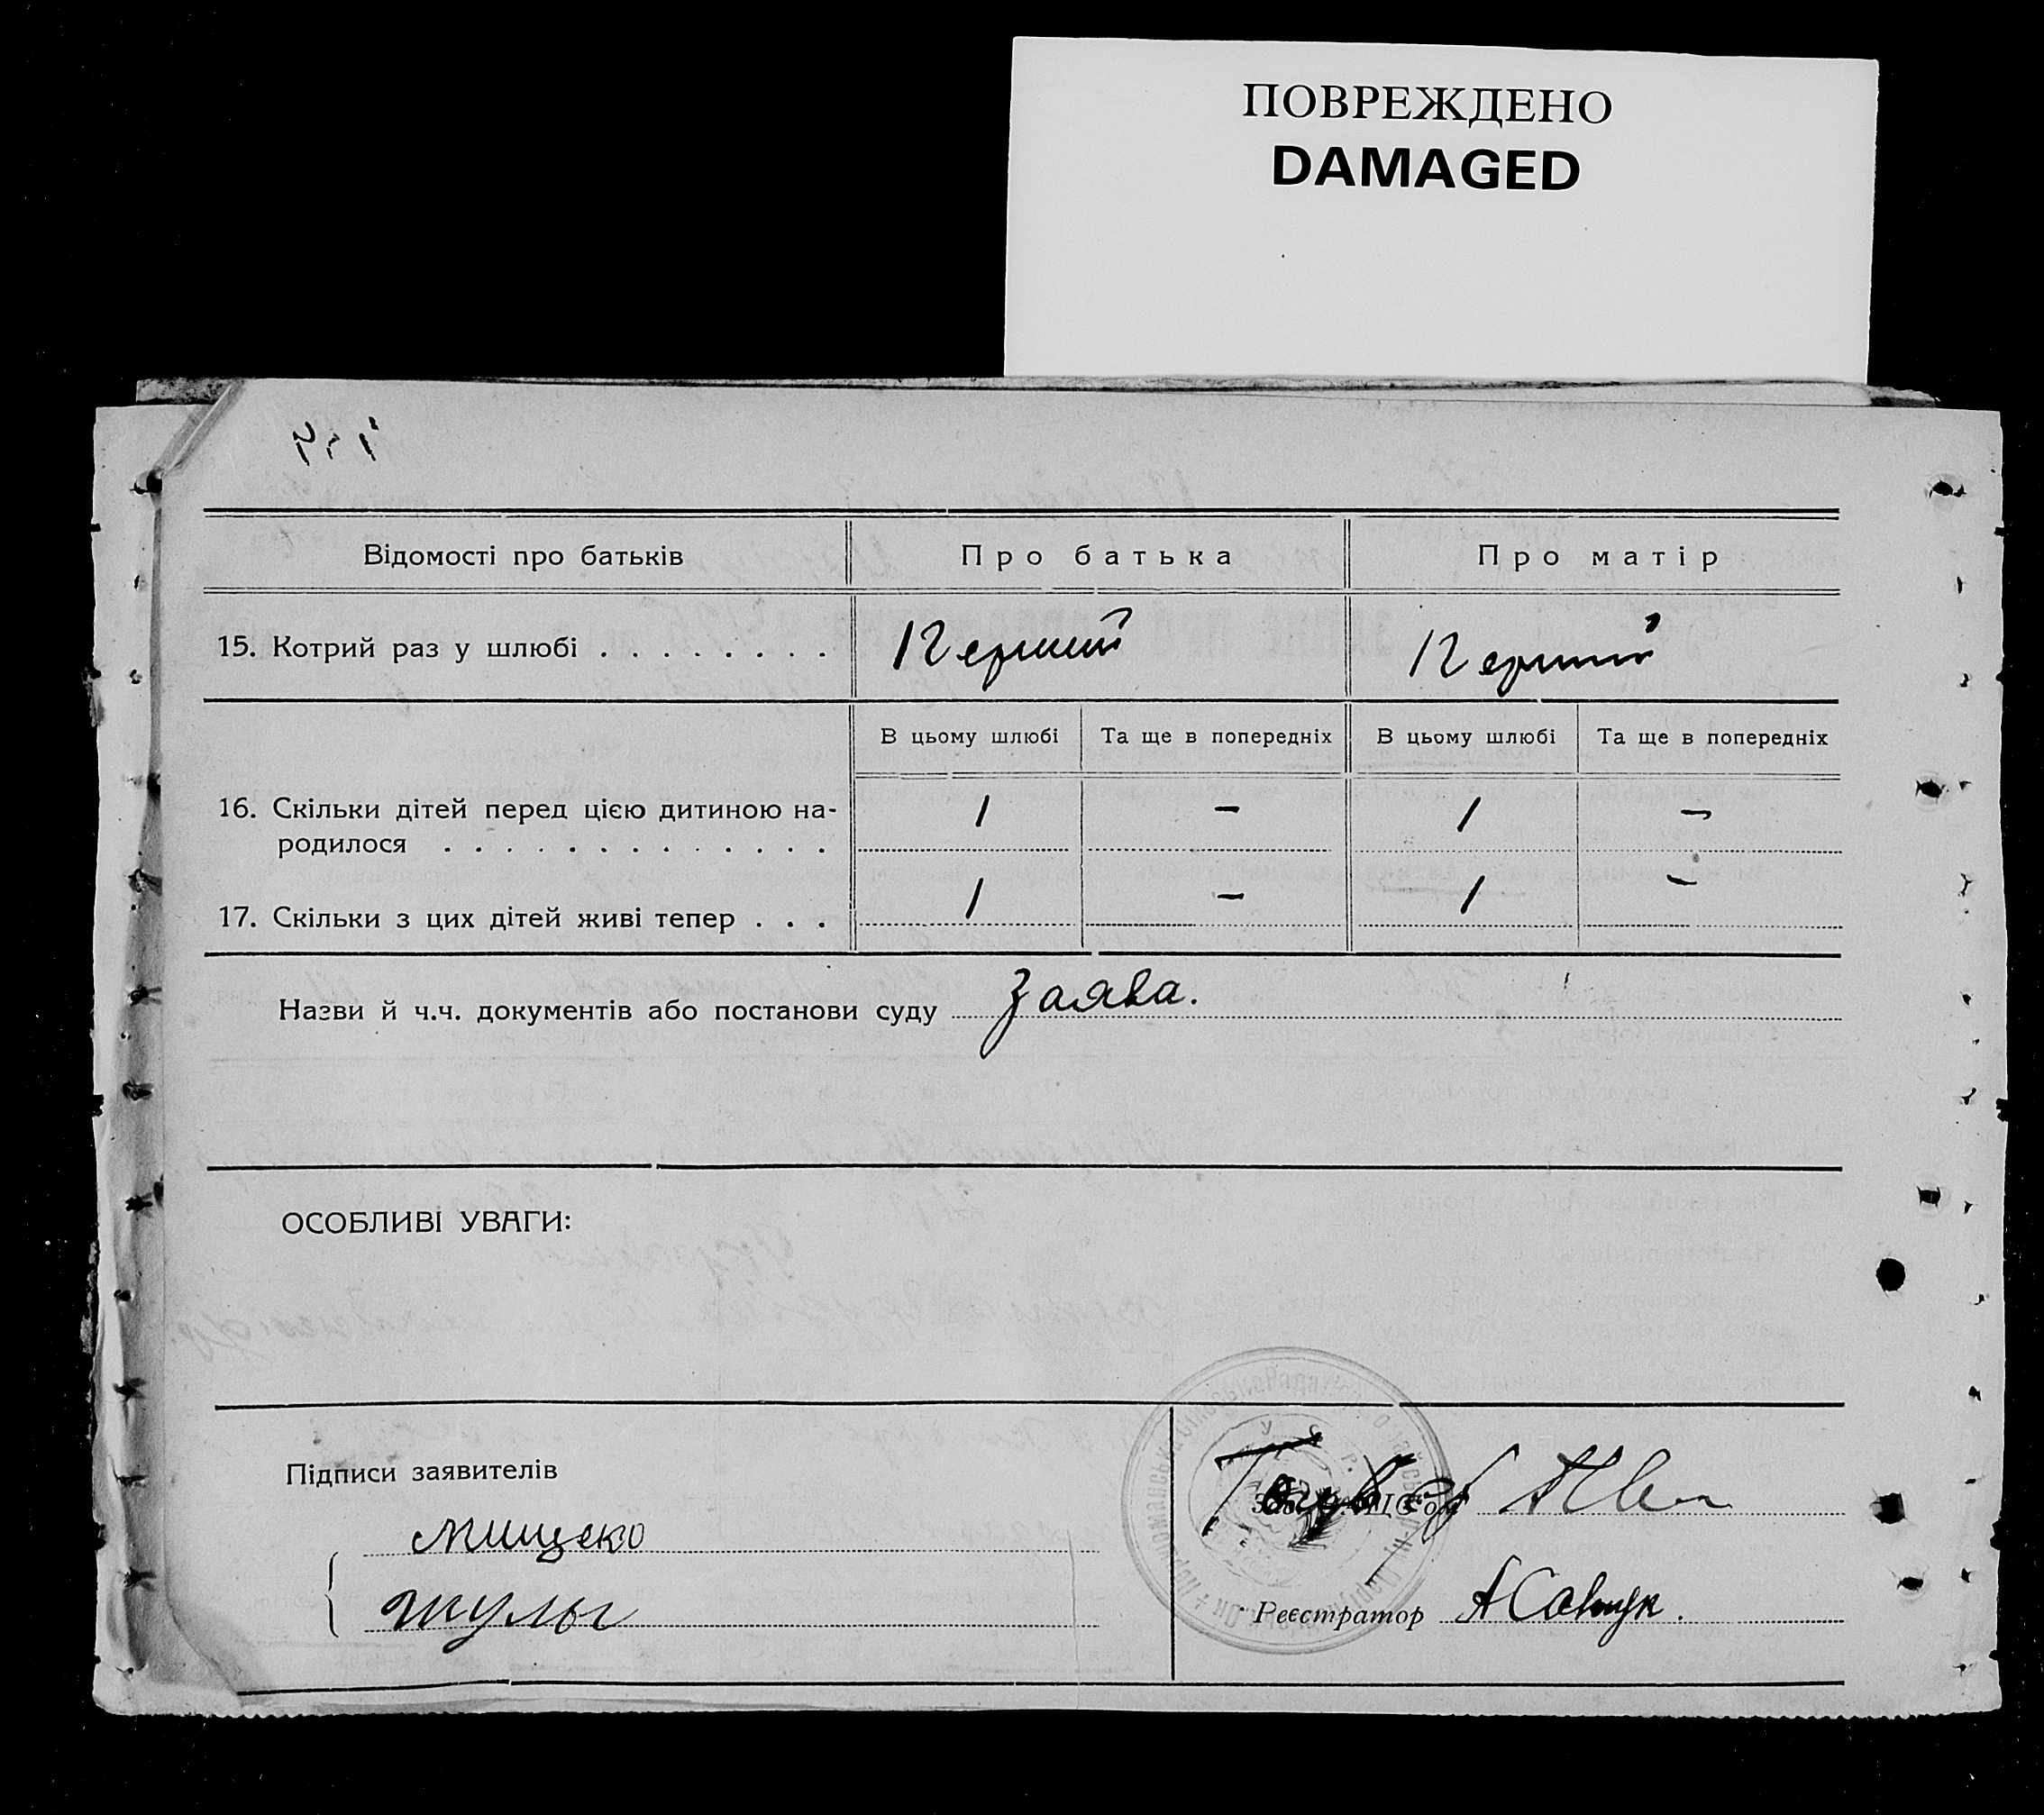 ПОВРЕЖДЕНО
DAMAGED
Відомості про батьків
Про батька
Про матір
15. Котрий раз у шлюбі . . . . . . . .
Перший
Перший
В цьому шлюбі
Та ще в попередніх
В цьому шлюбі
Та ще в попередніх
16. Скільки дітей перед цією дитиною на-
родилося . . . . . . . . . . . . .
1
–
1
–
17. Скільки з цих дітей живі тепер . . .
1
–
1
–
Назви й ч.ч. документів або постанови суду
Заява.
ОСОБЛИВІ УВАГИ:
Підписи заявителів
Мищеко
Реєстратор